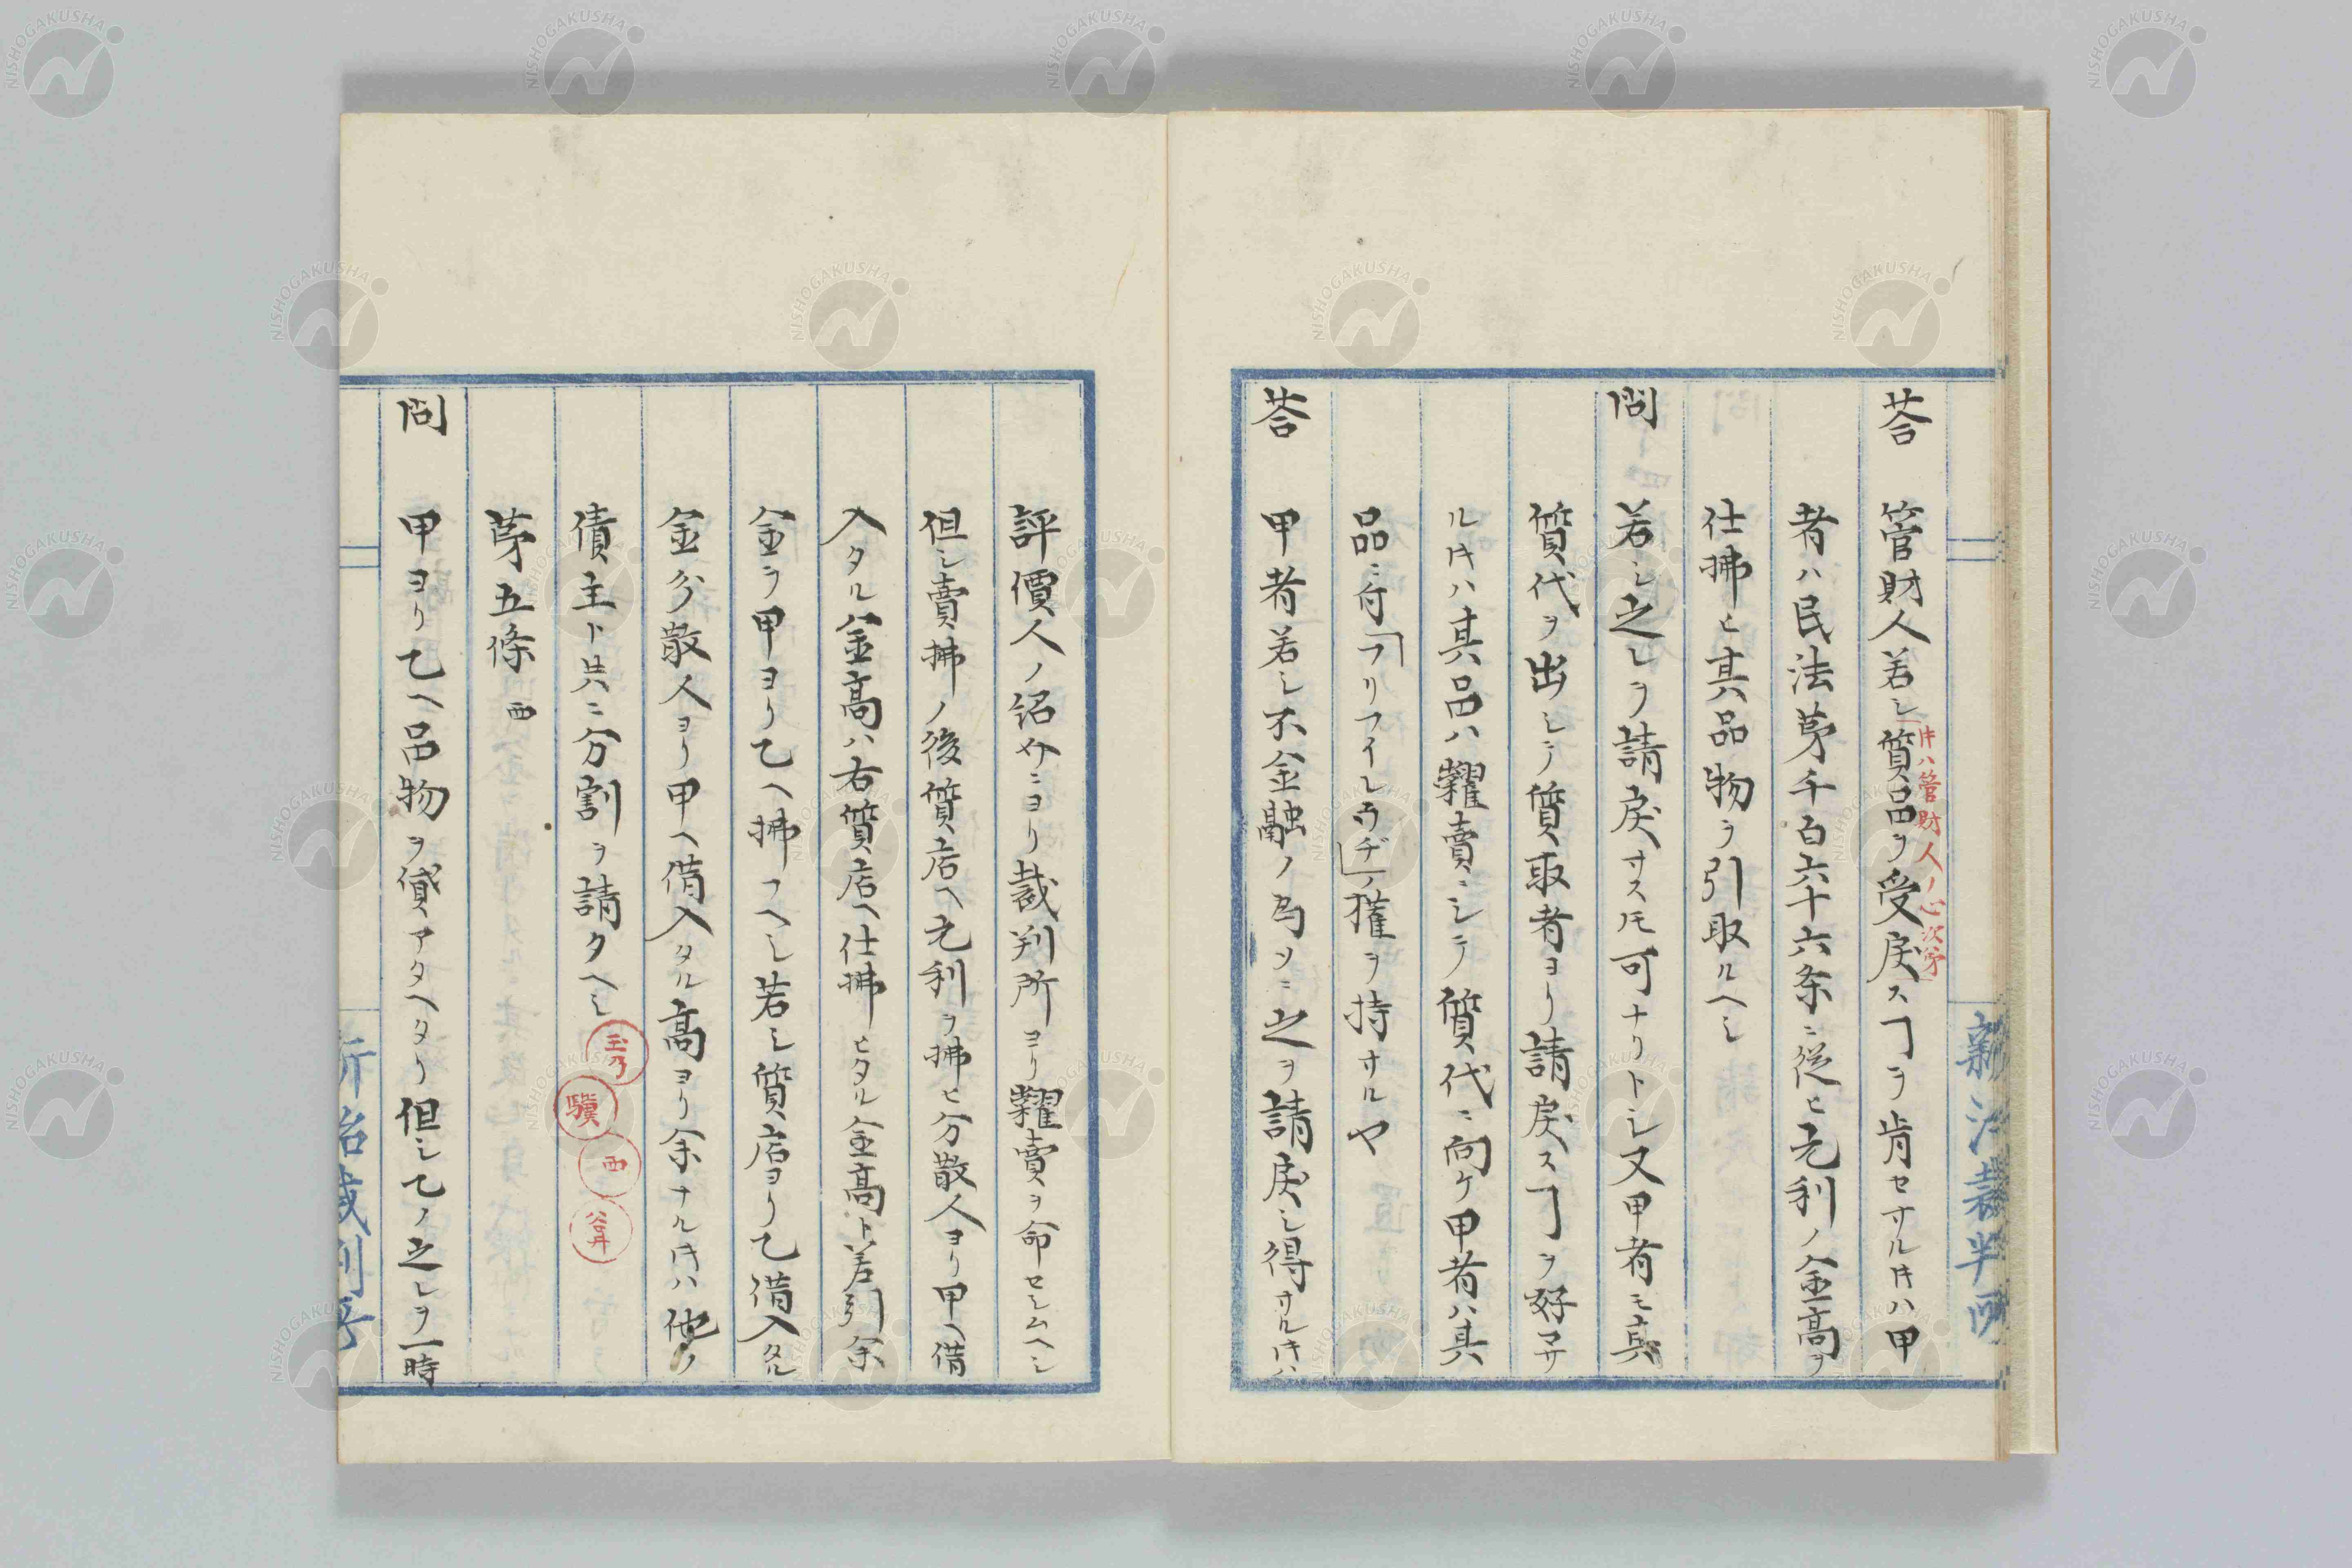 新治裁判所
答 管財人若シ質品ヲ受戻スヿヲ肯セサルキハ甲
キハ管財人ノ心次第
者ハ民法第千百六十六条ニ從ヒ元利ノ金高ヲ
仕拂ヒ其品物ヲ引取ルヘシ
問 若シ之レヲ請戻サスモ可ナリトシ又甲者モ眞
質代ヲ出シテ質取者ヨリ請戻スヿヲ好マサ
ルキハ其品ハ糶賣ニシテ質代ニ向ケ甲者ハ其
品ニ付「プリフイレウヂ」ノ獲ヲ持サルヤ
答 甲者若シ不金融ノ為メニ之ヲ請戻シ得サルキハ
評價人ノ紹介ニヨリ裁判所ヨリ糶賣ヲ命セシムヘシ
但シ賣拂ノ後質店ヘ元利ヲ拂ヒ分散人ヨリ甲ヘ借
入タル金高ハ右質店ヘ仕拂ヒタル金高ト差引余
金ヲ甲ヨリ乙ヘ拂フヘシ若シ質店ヨリ乙借入タル
金分散人ヨリ甲ヘ借入タル高ヨリ余ナルキハ他ノ
債主ト共ニ分割ヲ請クヘシ
玉乃
驥
西
第五條 西
問 甲ヨリ乙ヘ品物ヲ貸アタヘタリ但シ乙ノ之レヲ一時
新治裁判所
NISHOGAKUSHA